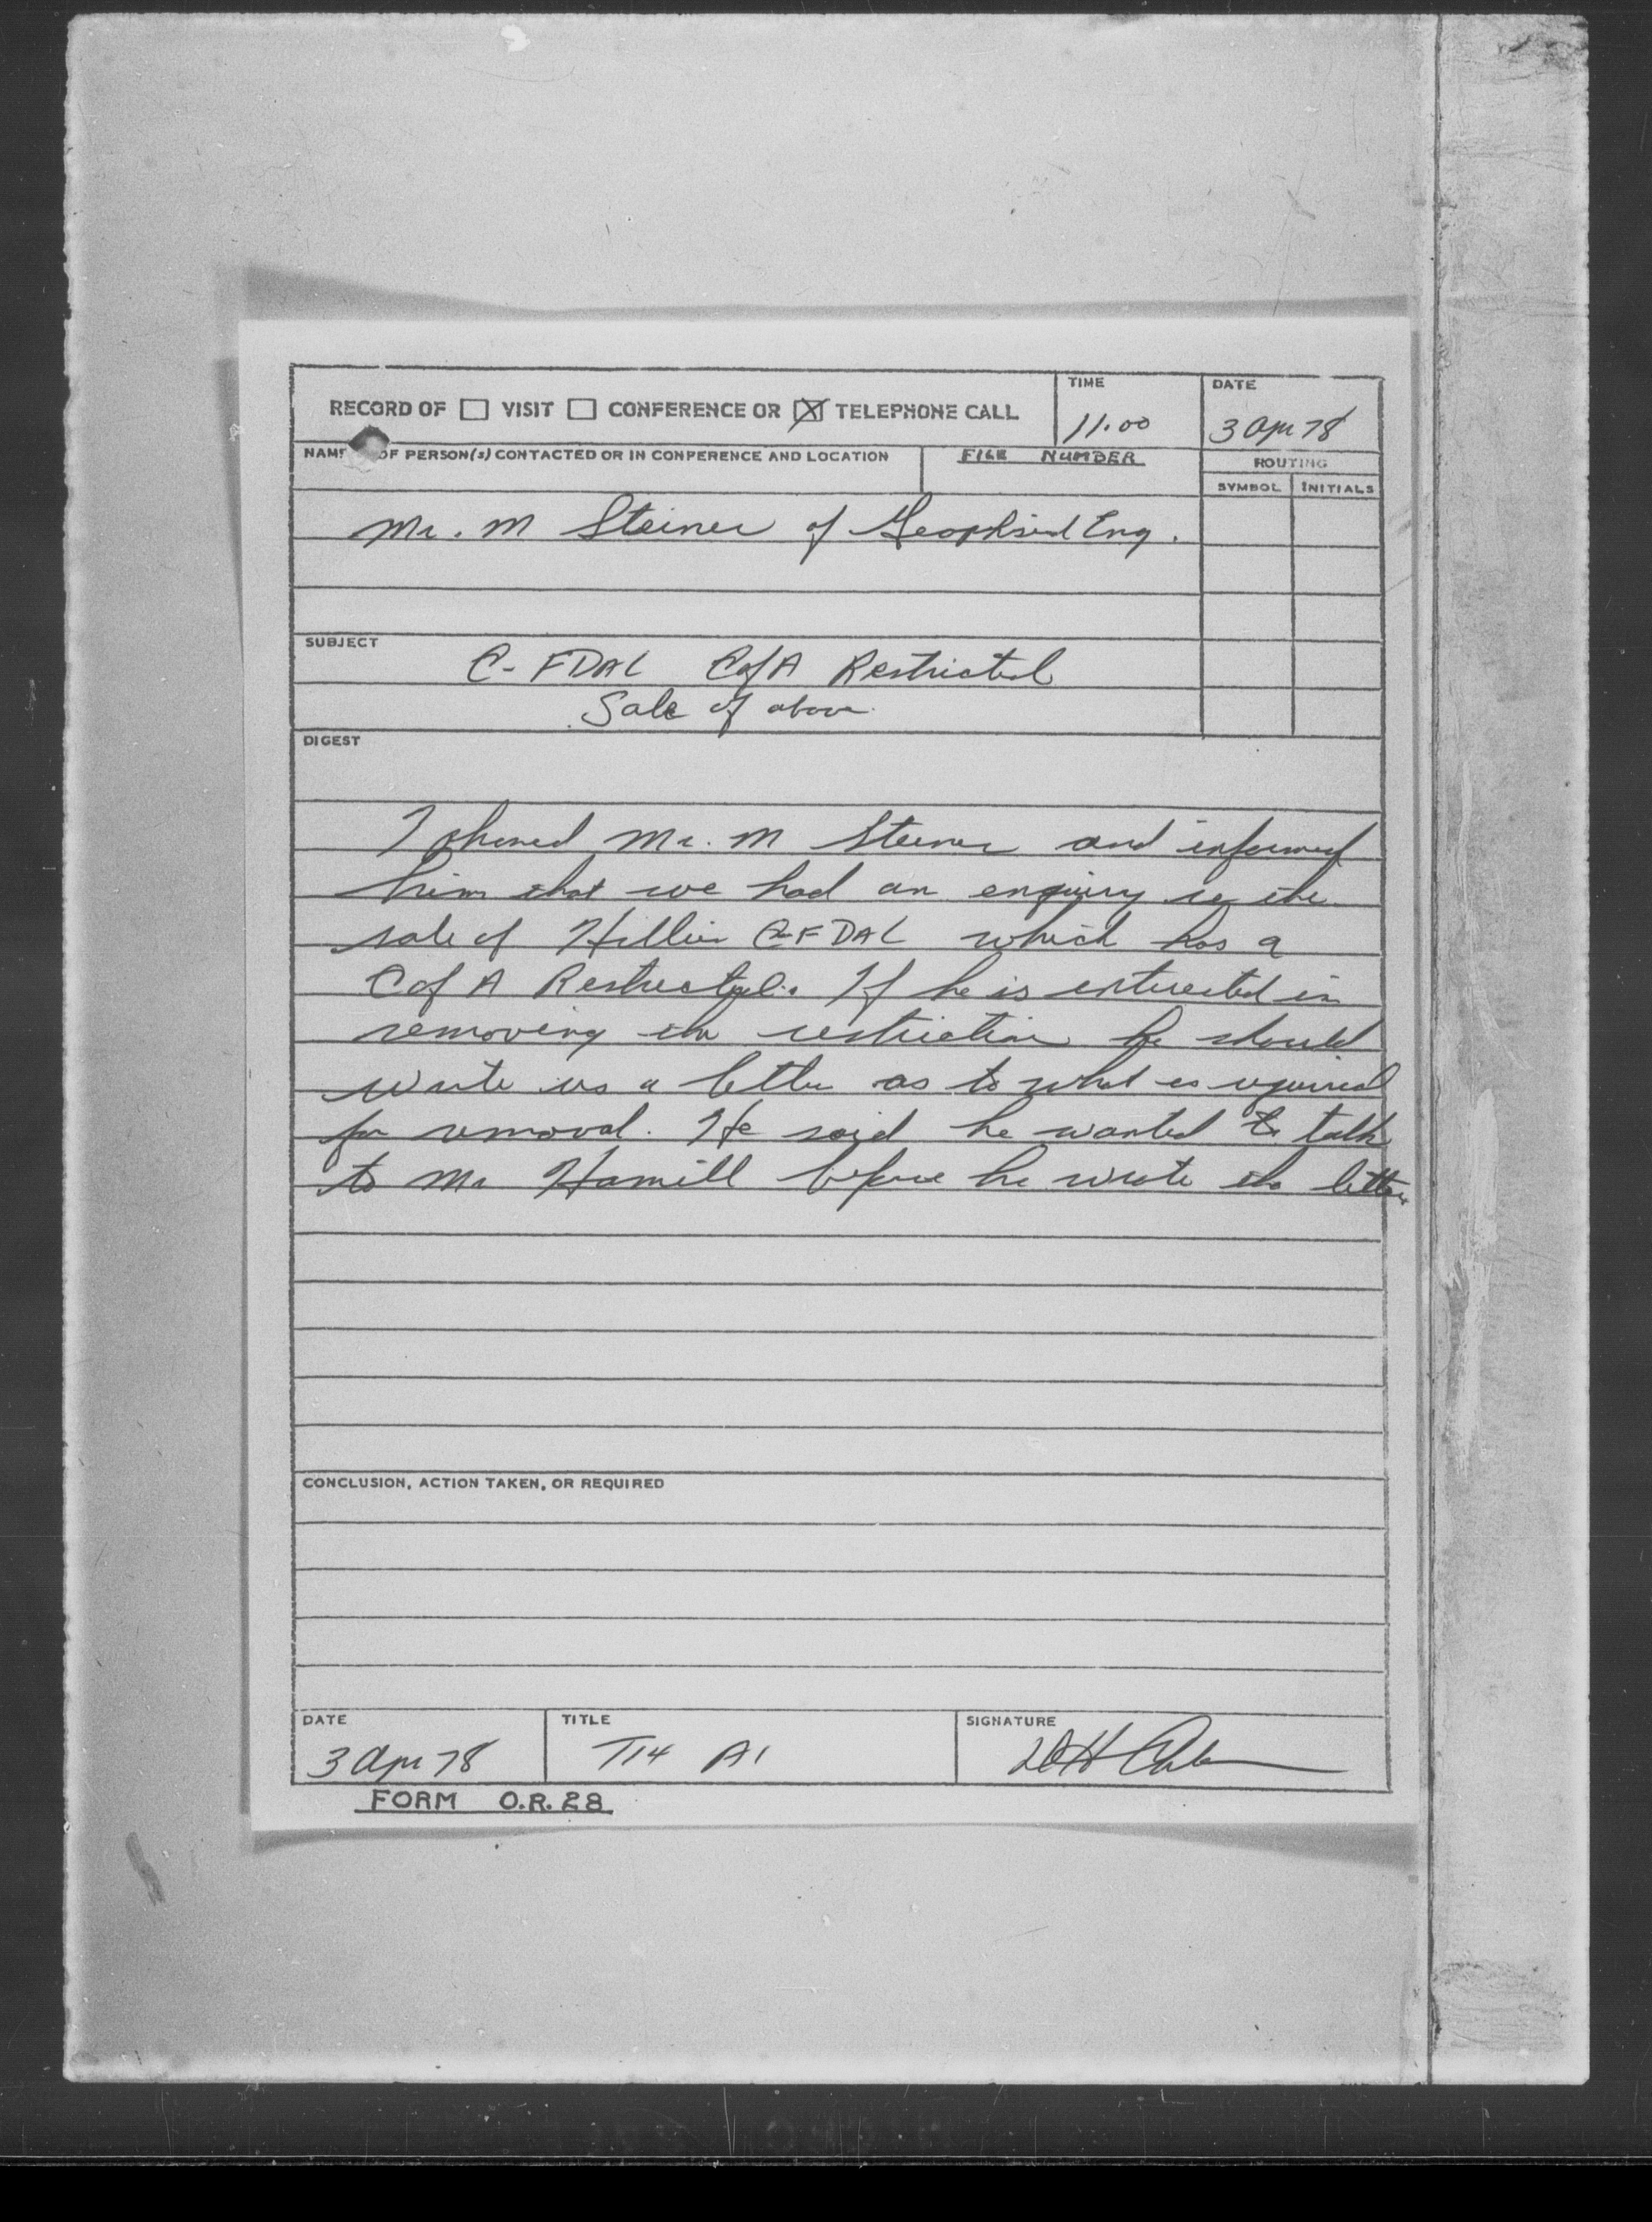 RECORD OF ☐ VISIT ☐ CONFERENCE OR ☒ TELEPHONE CALL
TIME
11.00
DATE
3 Apr 78
NAME OF PERSON(s) CONTACTED OR IN CONFERENCE AND LOCATION
FILE NUMBER
ROUTING
SYMBOL INITIALS
Mr. M Steiner of Eng.
SUBJECT
C-FDAL C of A Restricted
Sale of above.
DIGEST
I phoned Mr. M Steiner and informed
him that we had an enquiry re the
sale of C-FDAL which has a
C of A Restricted. If he is interested in
removing the restriction he should
write us a letter as to what is required
for removal. He said he wanted to talk
to Mr Hamill before he wrote the letter
CONCLUSION, ACTION TAKEN, OR REQUIRED
DATE
3 Apr 78
TITLE
T14 A1
SIGNATURE
FORM O.R. 28